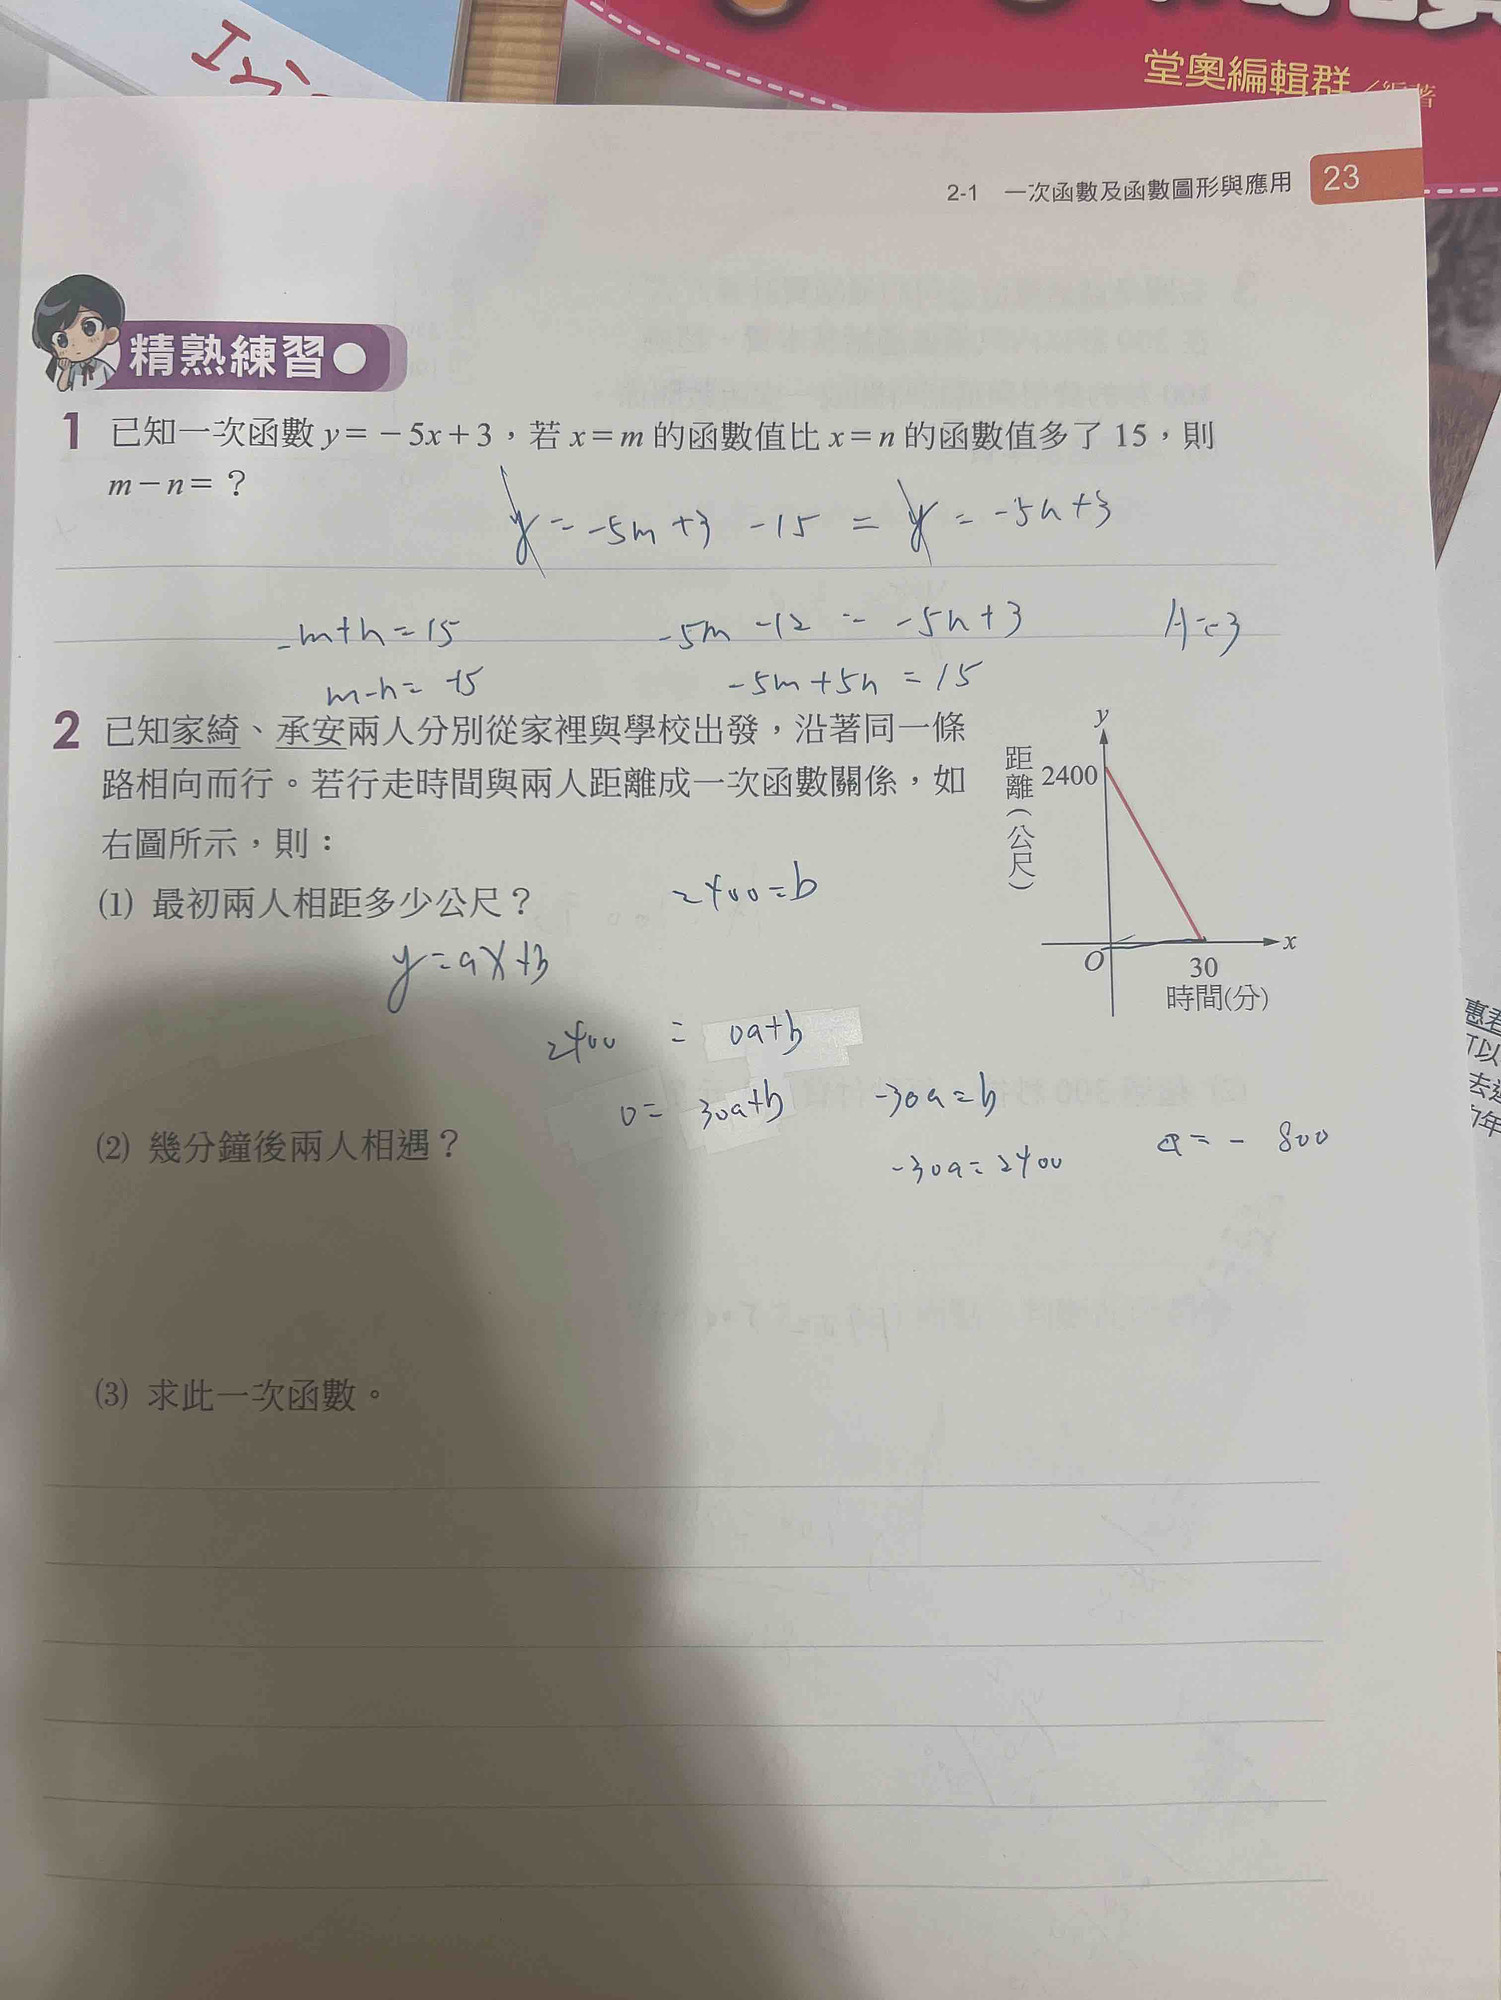 堂奧編輯群／編著
2-1 一次函數及函數圖形與應用 23
精熟練習
1 已知一次函數 y＝－5x＋3，若 x＝m 的函數值比 x＝n 的函數值多了 15，則
m－n＝？
y = -5m +3 -15 = y = -5n+3
-m+n=15 -5m -12 = -5n+3 A=-3
m-n= -15 -5m+5n = 15
2 已知家綺、承安兩人分別從家裡與學校出發，沿著同一條
路相向而行。若行走時間與兩人距離成一次函數關係，如
右圖所示，則：
y
距離(公尺)
2400
O
30
x
時間(分)
(1) 最初兩人相距多少公尺？ 2400=b
y=ax+b
2400 = 0a+b
0= 30a+b -30a=b
(2) 幾分鐘後兩人相遇？ -30a=2400 a=- 800
(3) 求此一次函數。